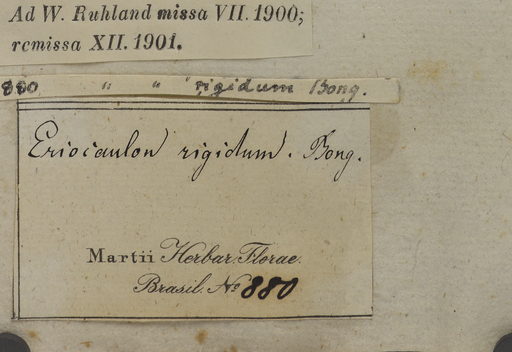 Ad W. Ruhland missa VII. 1900;
remissa XII. 1901.
880 " " rigidum Bong.
Eriocaulon rigidum. Bong.
Martii Herbar. Florae
Brasil. No 880